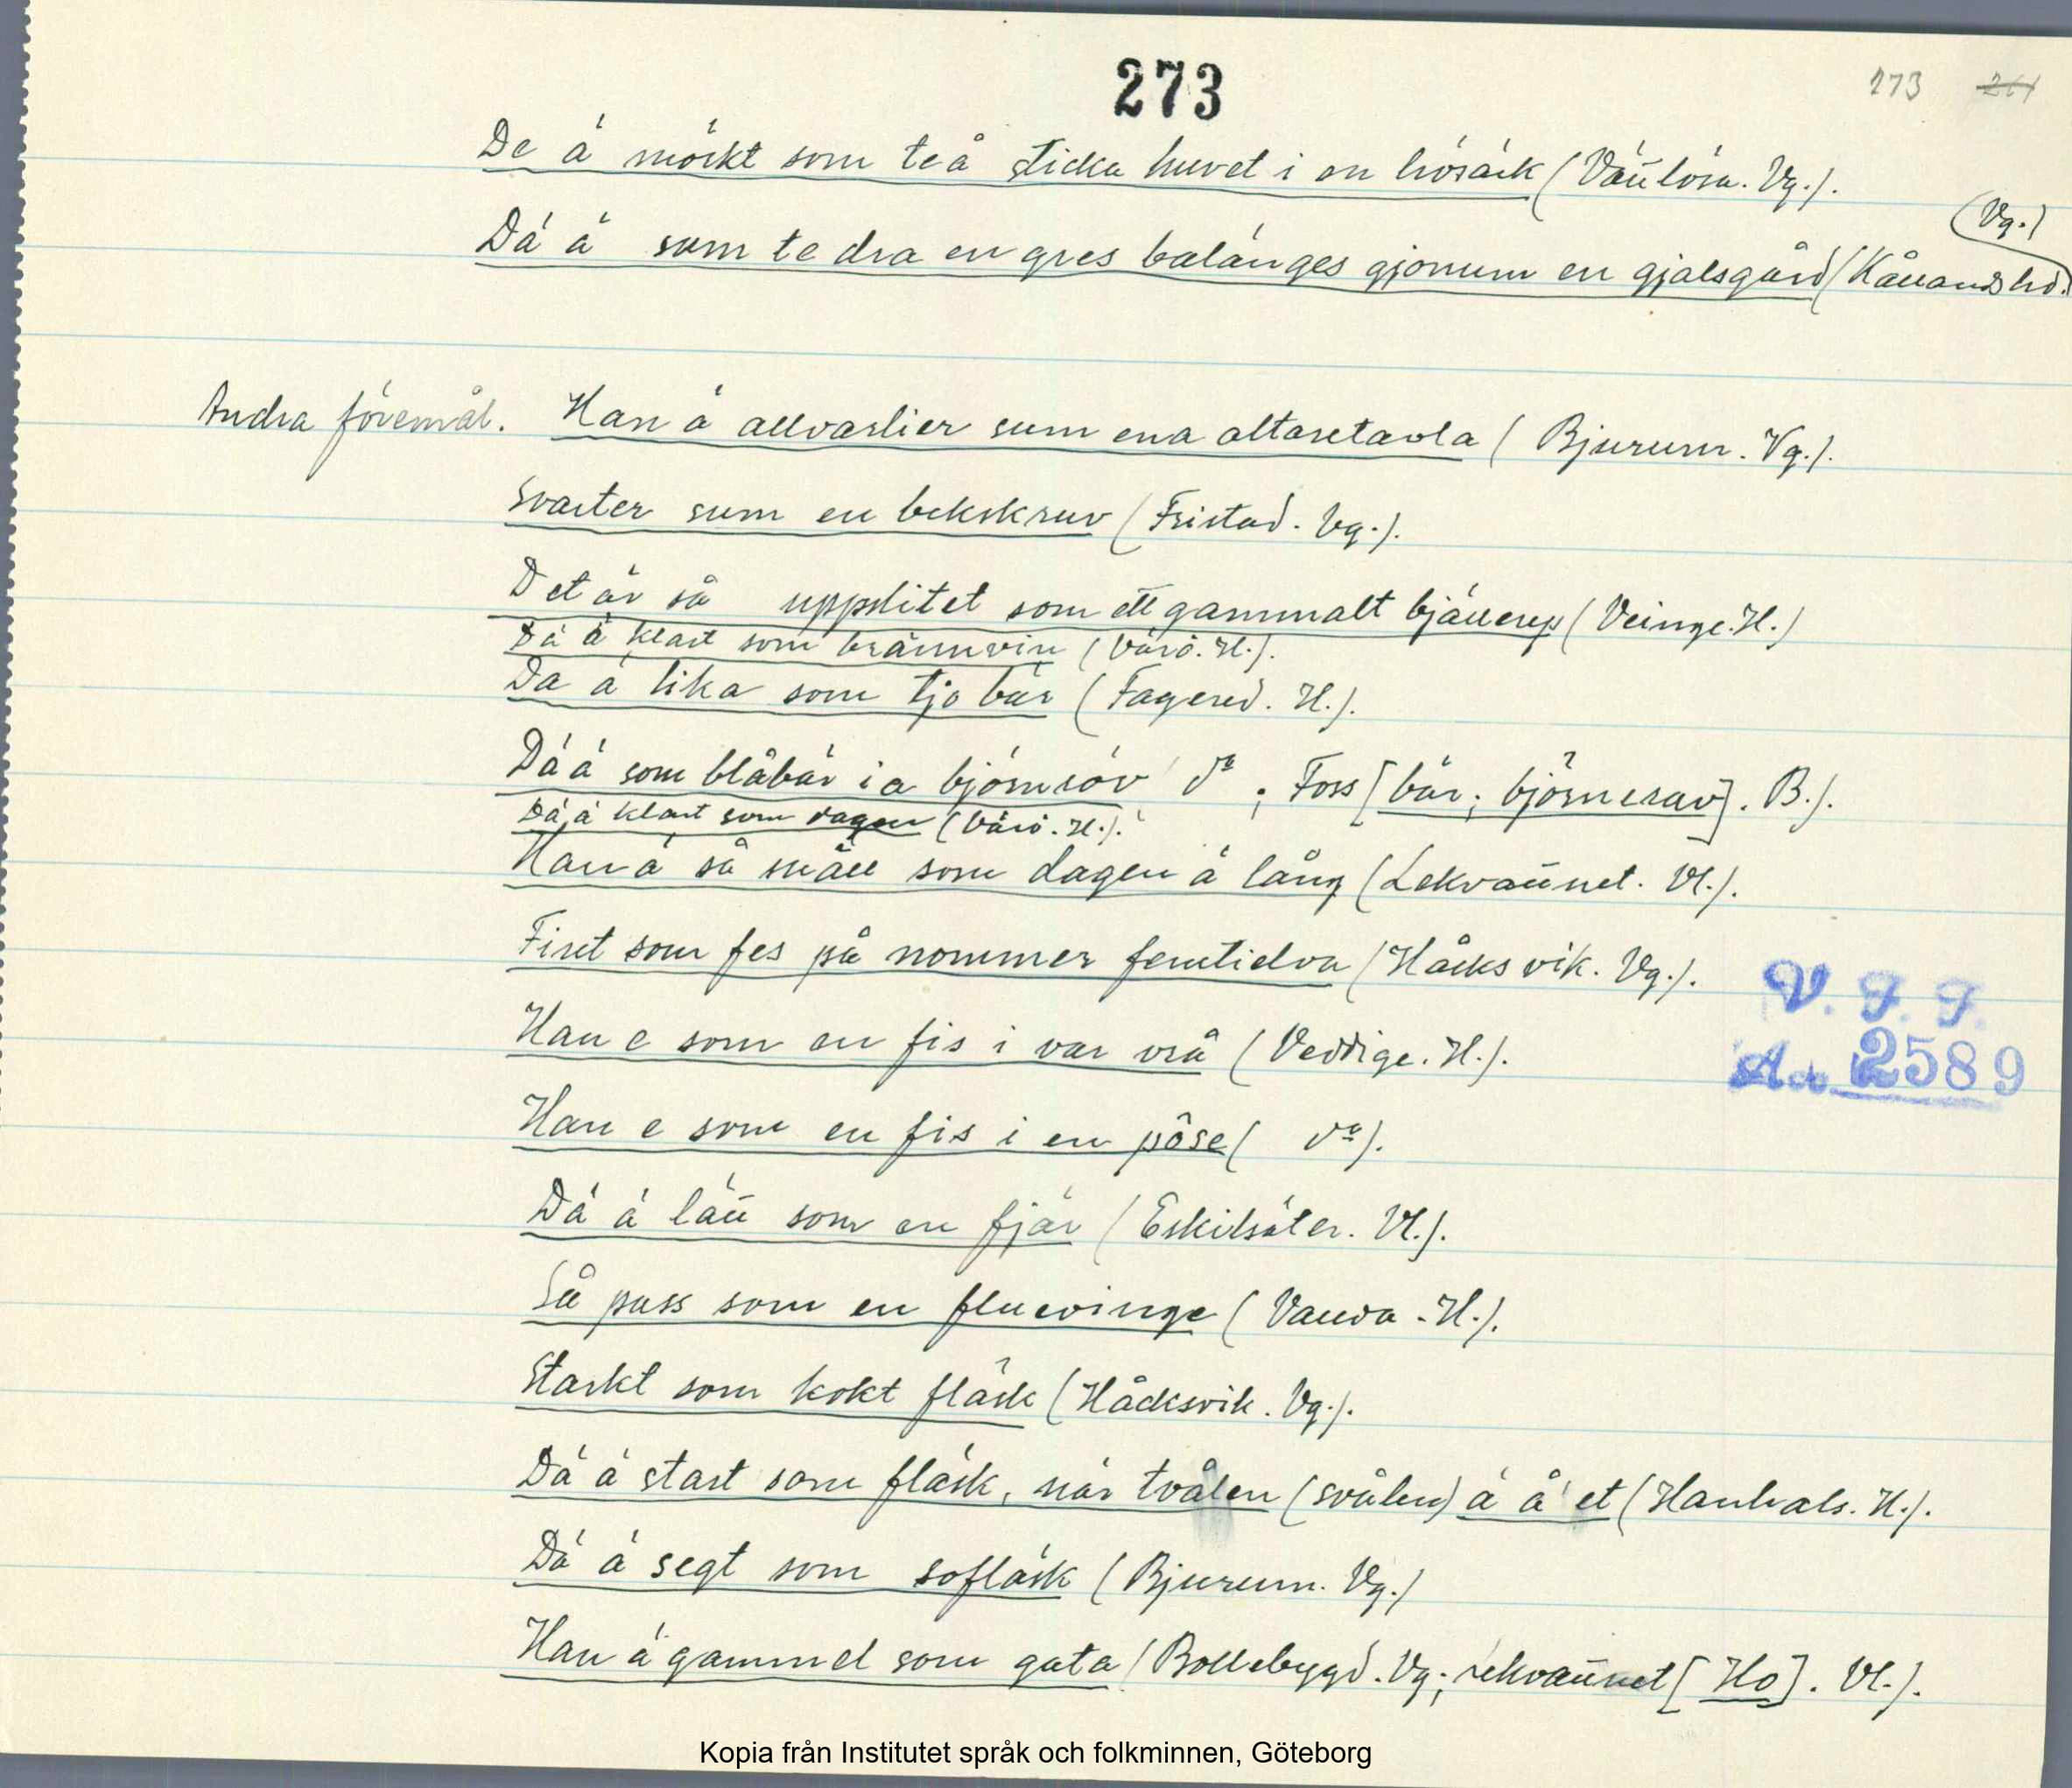 273
273 261
De ä mörkt som te å sticka huvet i en hösäck (Vänlösa. Vg.).
(Vg.)
Dä ä som te dra en gres balänges gjönum en gjälsgård (Kållands hd.
Andra föremål. Han ä allvarlier sum ena altaretavla (Bjurum. Vg.).
Svarter sum en bekskruv (Fristad. Vg.).
Det är så uppslitet som ett gammalt bjällerep (Veinge. H.)
Dä ä klart som brännvin (Värö. H.).
Dä ä lika som tjo bär (Fagered. H.).
Dä ä som blåbär i a björnröv d:o; Foss [bär; björnerav]. B.).
Dä ä klart som dagen (Värö. H.).
Han ä så snäll som dagen ä lång (Lekvattnet. Vl.).
Fint som fes på nommer femtielva (Håcksvik. Vg.).
V. F. F.
Acc. 2589
Han e som en fis i var vrå (Veddige. H.).
Han e som en fis i en påse ( d:o).
Dä ä lätt som en fjär (Eskilsäter. Vl.).
Så pass som en fluevinge (Vanda. H.).
Starkt som kokt fläsk (Håcksvik. Vg.).
Dä ä start som fläsk, när tvålen (svålen) ä å' et (Hanhals. H.).
Dä ä segt som sofläsk (Bjurum. Vg.)
Han ä gammel som gata (Bollebygd. Vg; Lekvattnet [Ho]. Vl.).
Kopia från Institutet språk och folkminnen, Göteborg